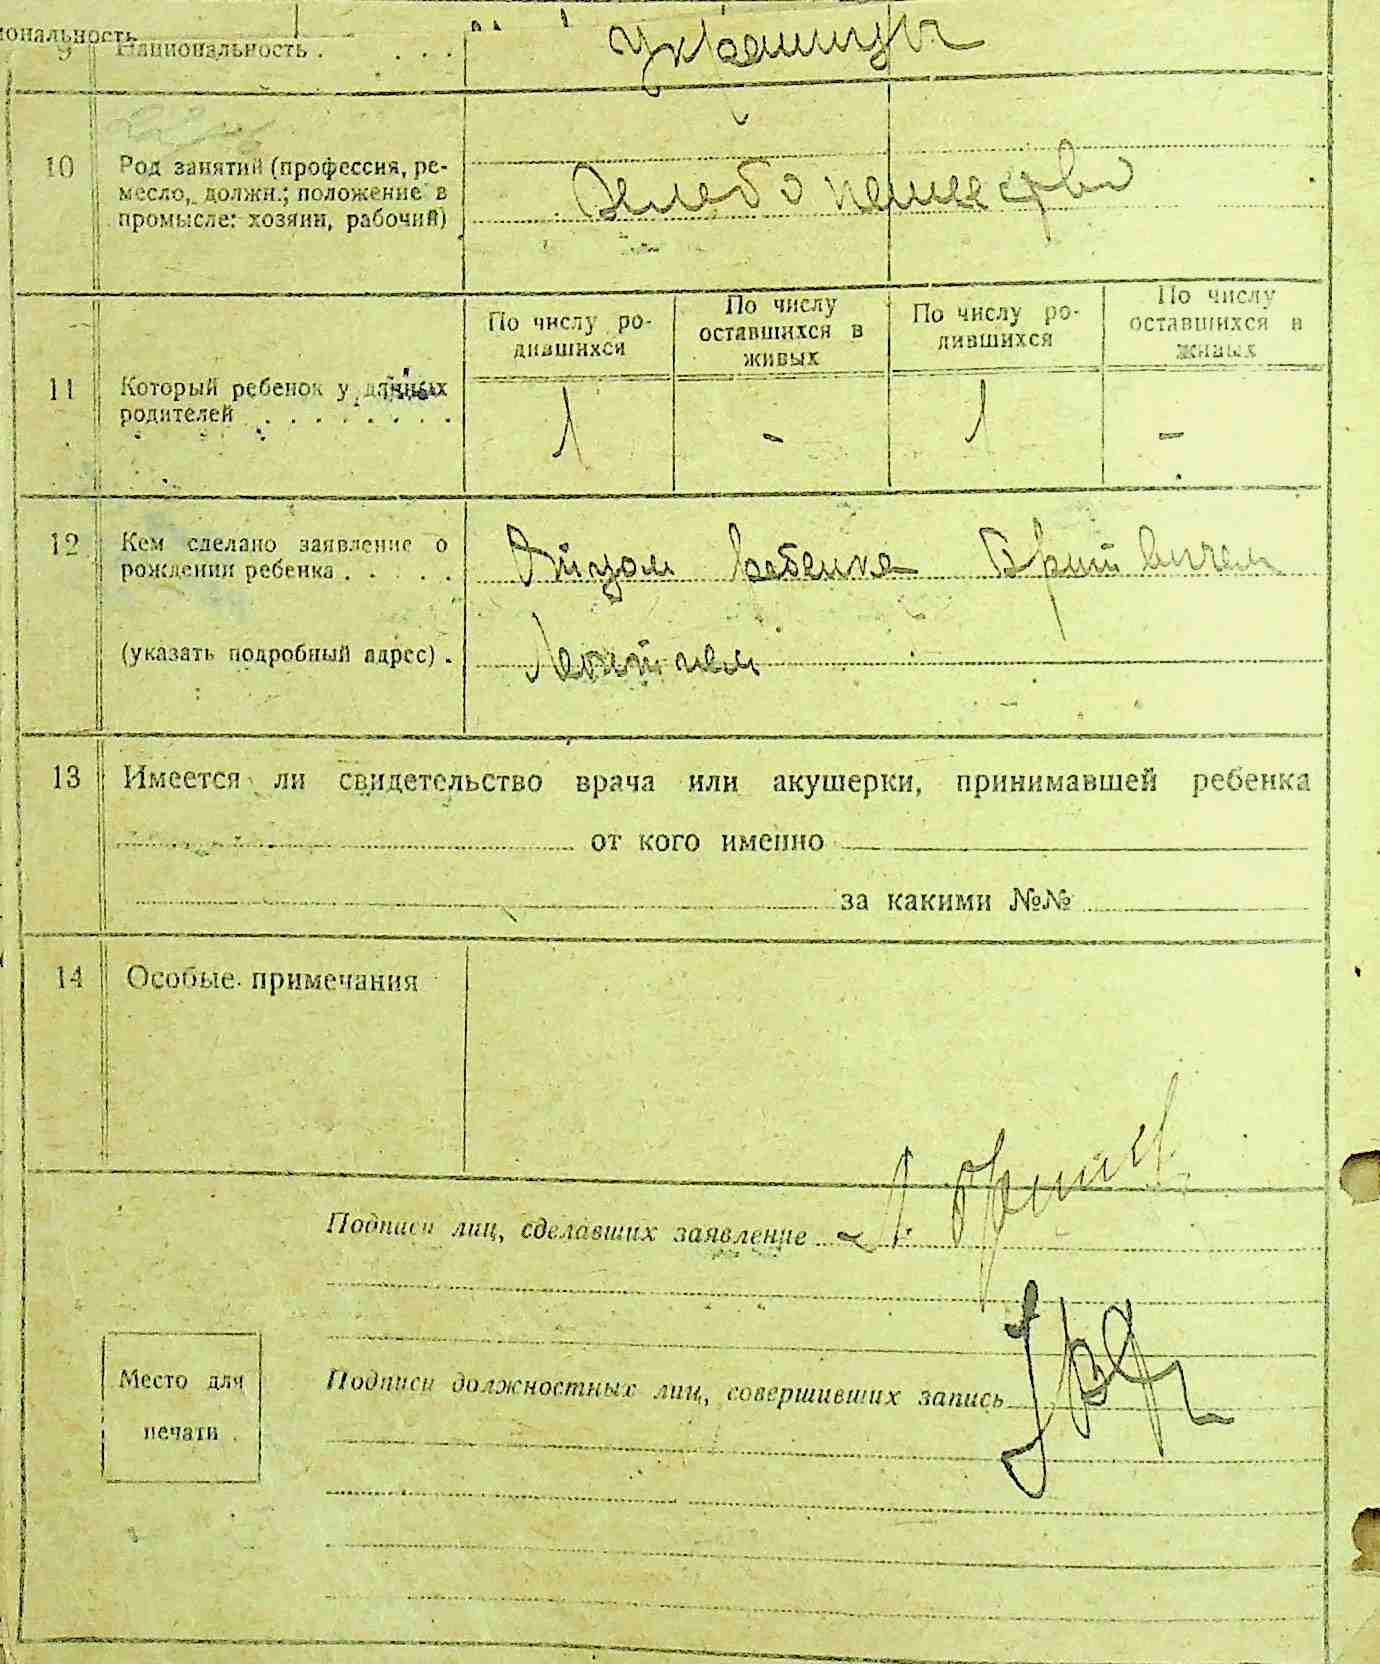 иональность
9 Национальность . . . . украинцы
10 Род занятий (профессия, ре-
месло, должн.; положение в
промысле: хозяин, рабочий)
По числу ро-
дившихся
По числу
оставшихся в
живых
По числу ро-
дившихся
По числу
оставшихся в
живых
11 Который ребенок у данных
родителей . . . . . . . .
1 - 1 -
12 Кем сделано заявление о
рождении ребенка . . . . .
Отцом ребенка
(указать подробный адрес) .
13 Имеется ли свидетельство врача или акушерки, принимавшей ребенка
от кого именно
за какими №№
14 Особые примечания
Подписи лиц, сделавших заявление
Место для
печати
Подписи должностных лиц, совершивших запись